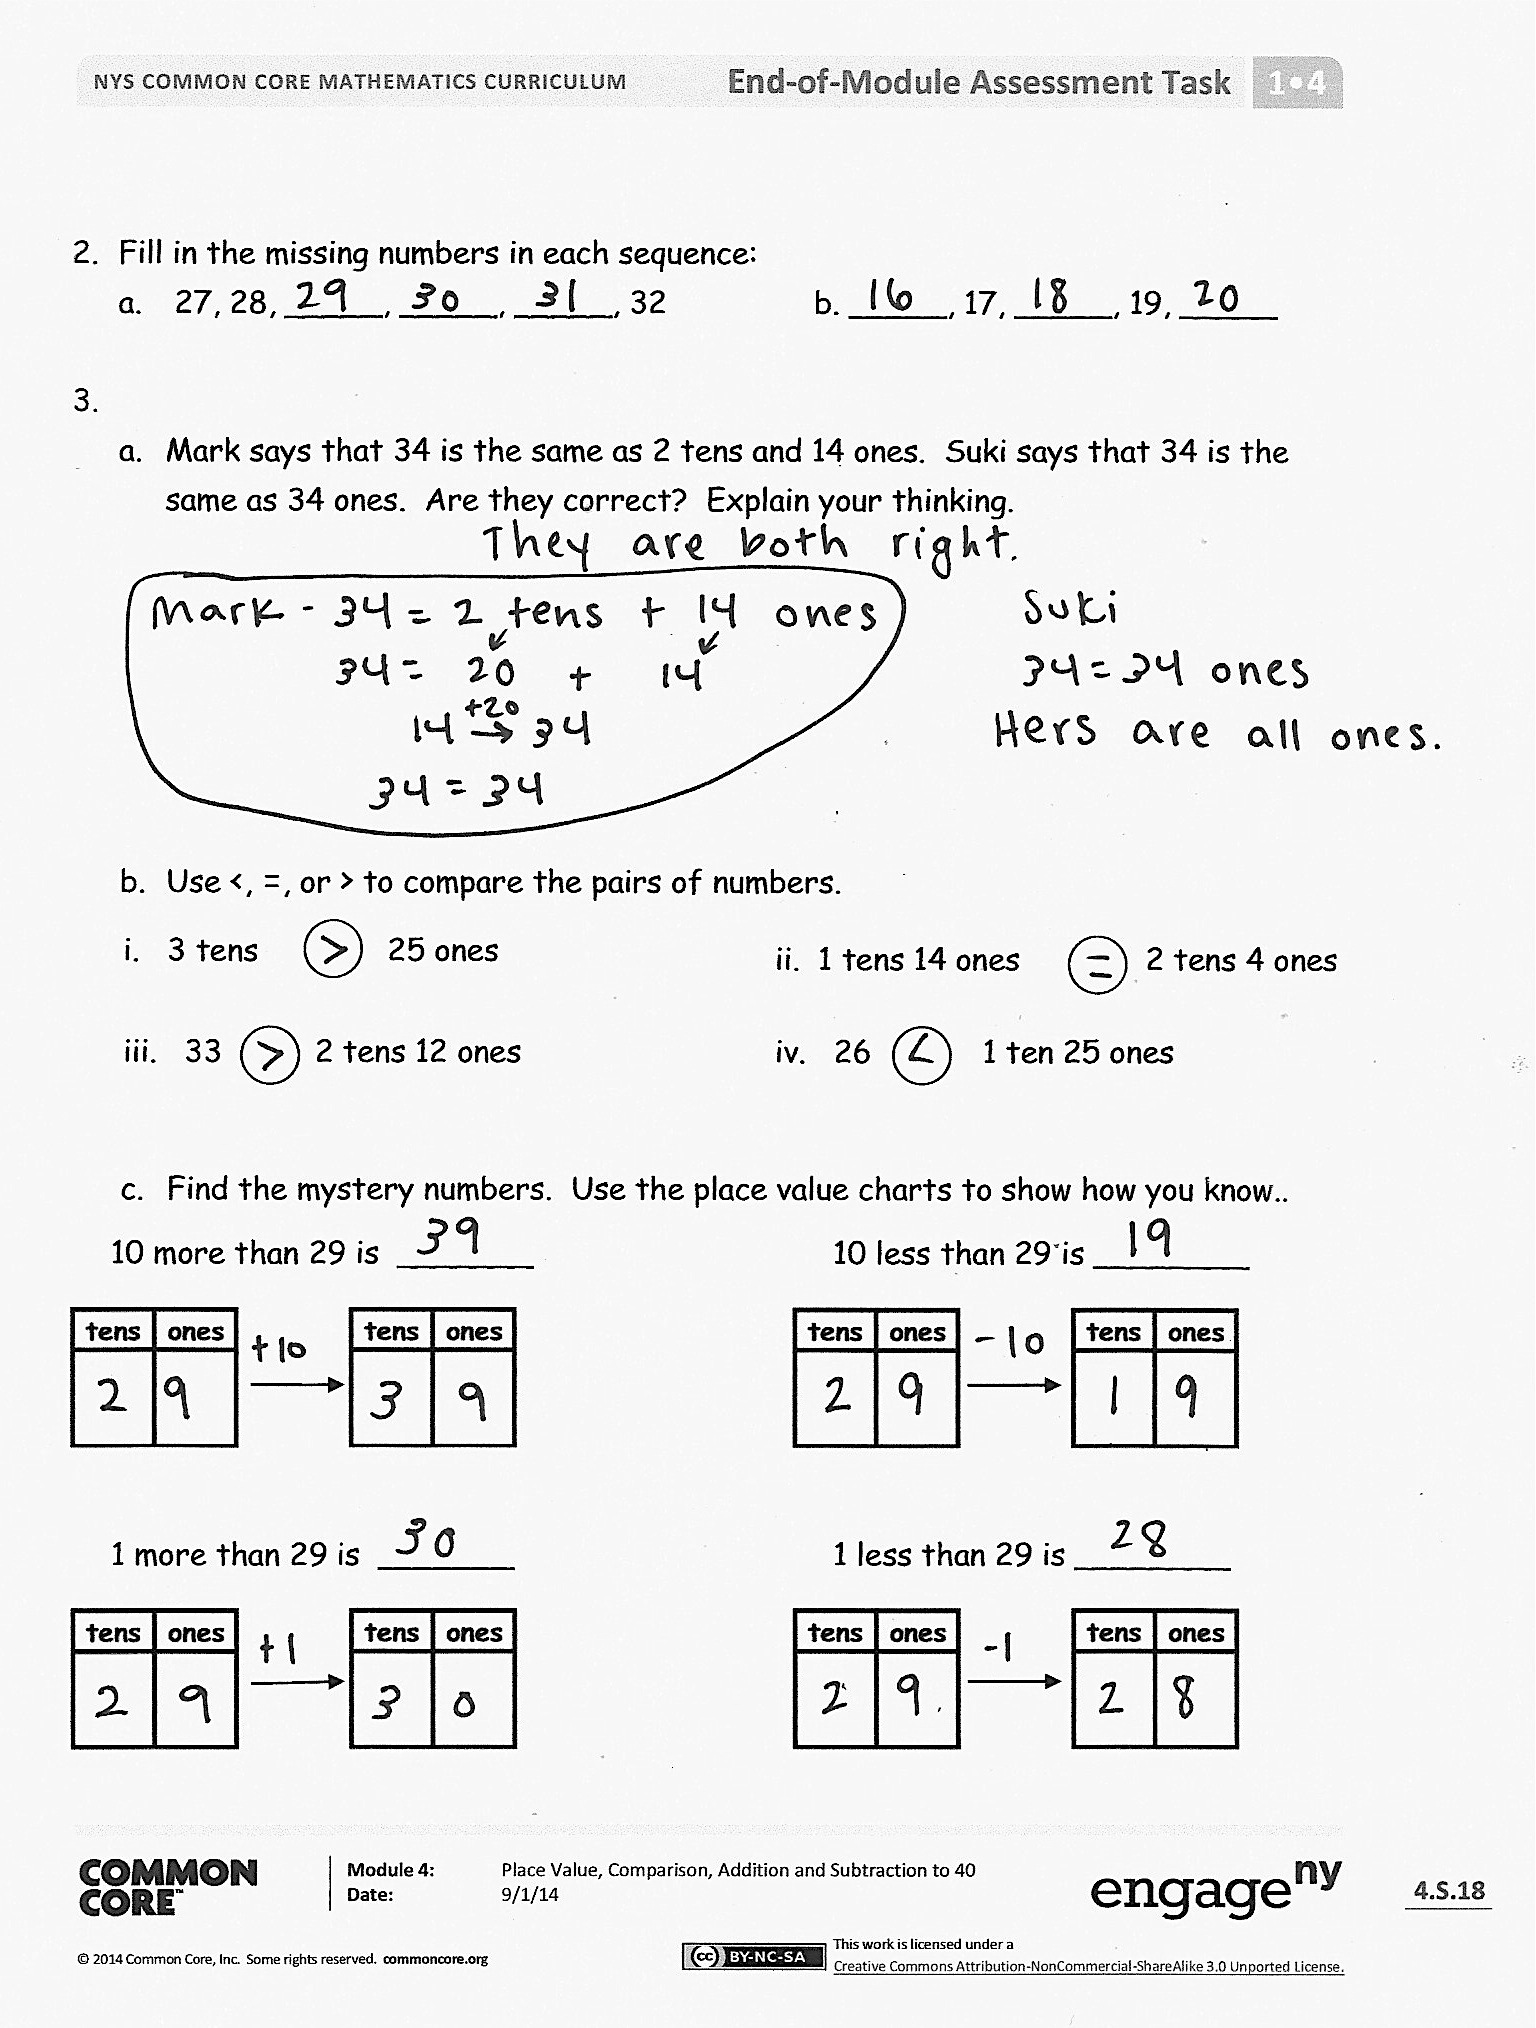 NYS COMMON CORE MATHEMATICS CURRICULUM End-of-Module Assessment Task 1•4
2. Fill in the missing numbers in each sequence:
a. 27, 28, 29, 30, 31, 32 b. 16, 17, 18, 19, 20
3.
a. Mark says that 34 is the same as 2 tens and 14 ones. Suki says that 34 is the
same as 34 ones. Are they correct? Explain your thinking.
They are both right.
Mark - 34 = 2 tens + 14 ones
34 = 20 + 14
14 +20→ 34
34 = 34
Suki
34 = 34 ones
Hers are all ones.
b. Use <, =, or > to compare the pairs of numbers.
i. 3 tens > 25 ones ii. 1 tens 14 ones = 2 tens 4 ones
iii. 33 > 2 tens 12 ones iv. 26 < 1 ten 25 ones
c. Find the mystery numbers. Use the place value charts to show how you know..
10 more than 29 is 39 10 less than 29 is 19
tens ones +10 tens ones tens ones -10 tens ones
2 9 → 3 9 2 9 → 1 9
1 more than 29 is 30 1 less than 29 is 28
tens ones +1 tens ones tens ones -1 tens ones
2 9 → 3 0 2 9 → 2 8
COMMON
CORE™
Module 4: Place Value, Comparison, Addition and Subtraction to 40
Date: 9/1/14
engage ny
4.S.18
© 2014 Common Core, Inc. Some rights reserved. commoncore.org
cc BY-NC-SA
This work is licensed under a
Creative Commons Attribution-NonCommercial-ShareAlike 3.0 Unported License.